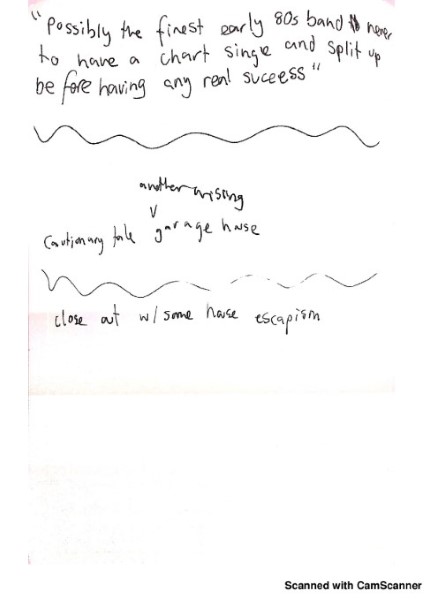 "Possibly the finest early 80s band to never
to have a chart single and split up
before having any real success"
another arising
Cautionary tale garage house
close out w/ some house escapism
Scanned with CamScanner